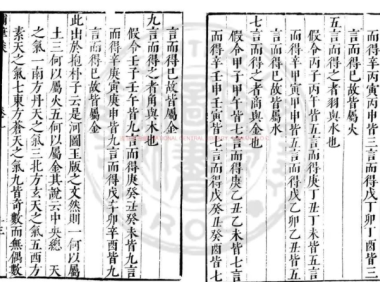 而得辛丙寅丙申皆三言而得戊丁卯丁酉皆三
言而得巳故皆屬火
五言而得之者羽與水也
假令丙子丙午皆五言而得庚丁丑丁未皆五言
而得辛甲寅甲申皆五言而得戊乙卯乙酉皆五
言而得巳故皆屬水
七言而得之者商與金也
假令甲子甲午皆七言而得庚乙丑乙未皆七言
而得辛壬申壬寅皆七言而得戊癸丑癸酉皆七
言而得巳故皆屬金
九言而得之者角與木也
假令壬子壬午皆九言而得庚癸丑癸未皆九言
而得辛庚寅庚申皆九言而得戊辛卯辛酉皆九
言而得巳故皆屬金
此出於抱朴子云是河圖玉版之文然則一何以屬
土三何以屬火五何以屬水其説云中央總天
之氣一南方丹天之氣三北方玄天之氣五西方
素天之氣七東方蒼天之氣九皆奇數而無偶數